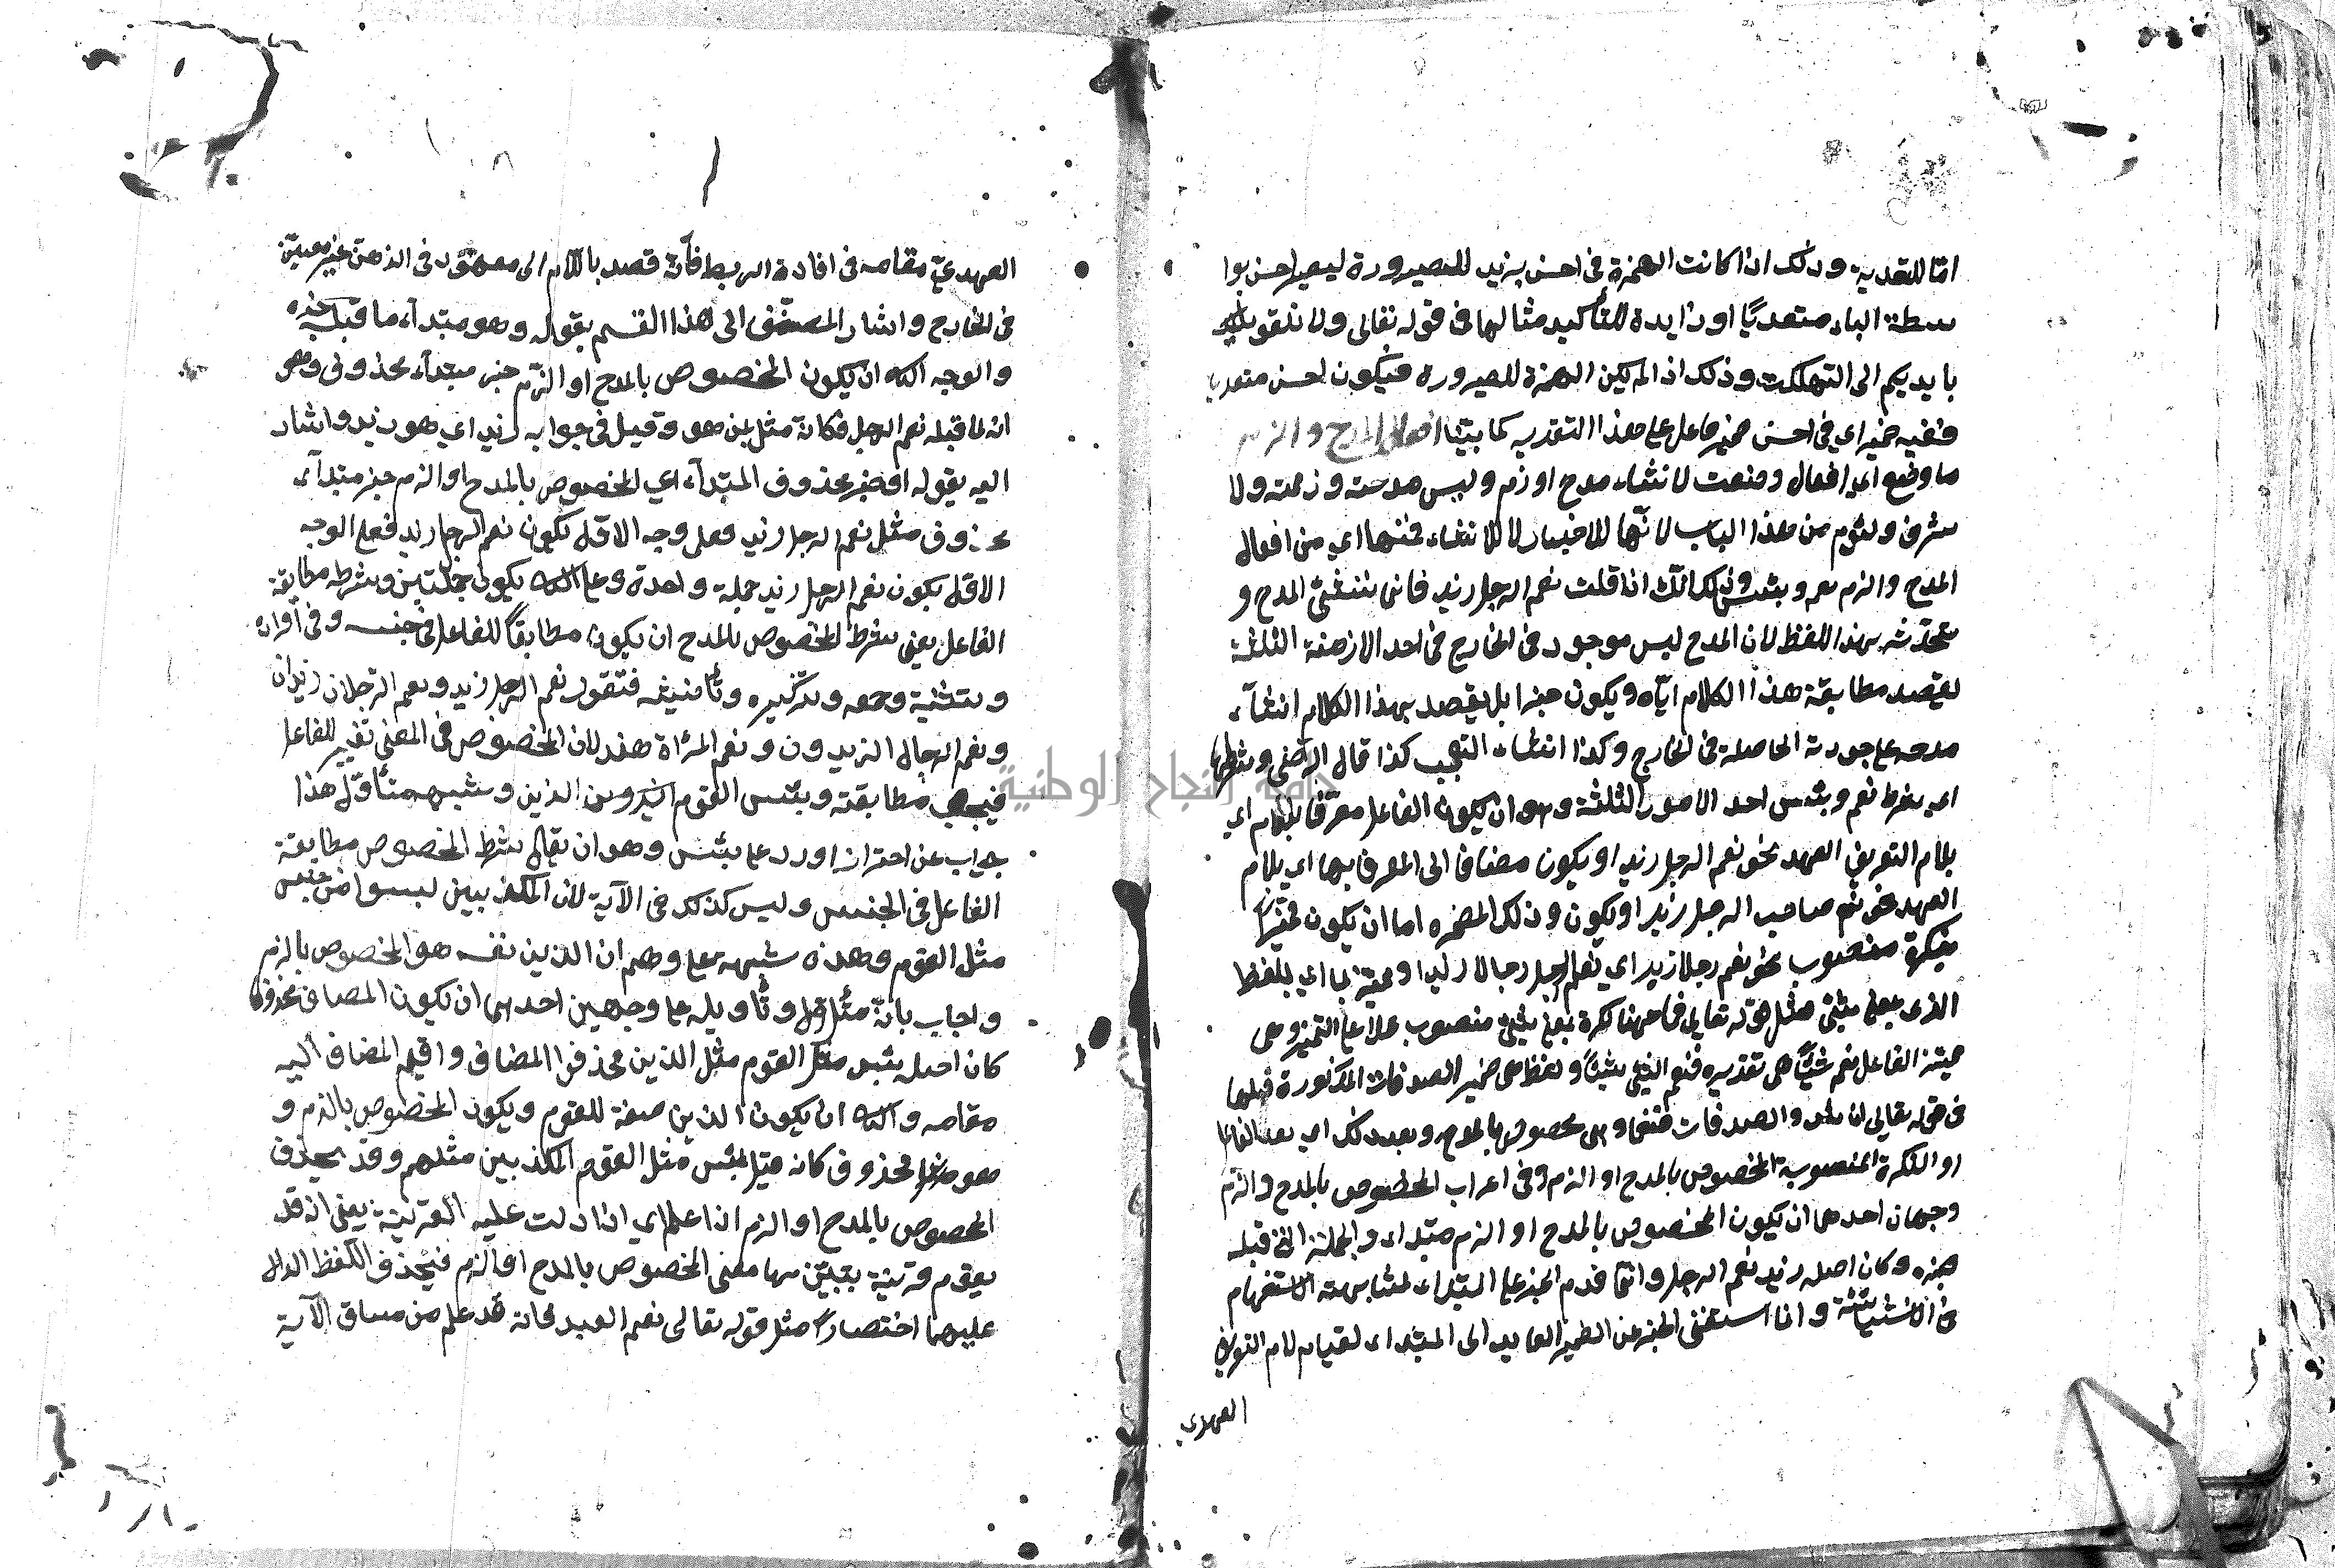 اما للتعدية وذلك اذا كانت الهمزة في احسن بزيد للصيرورة ليصير احسن بوا
سطة الباء متعديًا او زايدة للتأكيد مثالهما في قوله تعالى ولا تلقوا
بايديكم الى التهلكت وذلك اذا لم يكن الهمزة للصيروره فيكون احسن متعديا
ففيه ضمير اي في احسن ضمير فاعل على هذا التقدير كما بيّنا افعال المدح والذم
ما وضع اي افعال وضعت لانشاء مدح او ذم وليس مدحته وذممته ولا
شرف ولئوم من هذا الباب لانّها للاخبار لا للانشاء فمنها اي من افعال
المدح والذم نعم وبئس وذلك انّك اذا قلت نعم الرجل زيد فانما تنشئ المدح و
تحدثه بهذا اللفظ لان المدح ليس موجود في الخارج في احد الازمنة الثلثة
يقصد مطابقة هذا الكلام ايّاه ويكون خبرا بل يقصد بهذا الكلام انشاء
مدحه على جودته الحاصلة في الخارج وكذا انشاء التعجب كذا قال الرضي وشرطها
اي شرط نعم وبئس احد الامور الثلثة وهو ان يكون الفاعل معرّفا باللام اي
بلام التعريف العهد نحو نعم الرجل زيد او يكون مضافا الى المعرف بها اي بلام
العهد نحو نعم صاحب الرجل زيد او يكون وذلك المضمره اما ان يكون مميّزا
بنكرة منصوب نحو نعم رجلا زيد اي نعم الرجل رجالا زيد او مميزة بما اي بلفظ
الذى بمعنى شئ مثل قوله تعالى فنعما هي فما نكرة بمعنى شئ منصوب محلا على التميز وهى
مميّز الفاعل نعم شيئًا هى تقديره فنعم الشئ شيئًا ولفظ هى ضمير الصدقات المذكورة قبلها
في قوله تعالى ان تبدوا الصدقات فنعما وهى مخصوص بالمدح وبعد ذلك اي بعد الفاعل
او النكرة المنصوبة المخصوص بالمدح او الذم وفي اعراب المخصوص بالمدح والذم
وجهان احدهما ان يكون المخصوص بالمدح او الذم مبتداء والجملة التى قبله
خبره وكان اصله زيد نعم الرجل وانّما قدم الخبر على المبتداء لمشابهته الاستفهام
في الانشائيّة وانما استغنى الخبر عن الضمير العايد الى المبتداء لقيام لام التعريف
العهدي
العهدىّ مقامه في افادة الربط فانّه قصد باللام الى معهود في الذهن غير معيّن
في الخارج واشار المصنّف الى هذا القسم بقوله وهو مبتدأ ما قبله خبره
والوجه الثاني ان يكون المخصوص بالمدح او الذم خبر مبتدأ محذوف وهو
انه لما قبله نعم الرجل فكانّه مثل من هو وقيل في جوابه زيد اي هو زيد واشار
اليه بقوله او خبر محذوف المبتدأ اي المخصوص بالمدح او الذم خبر مبتدأ
محذوف مثل نعم الرجل زيد فعلى وجه الاوّل يكون نعم الرجل زيد فعلى الوجه
الاوّل يكون نعم الرجل زيد جملة واحدة وعلى الثاني يكون جملتين وشرطه مطابقة
الفاعل يعني شرط المخصوص بالمدح ان يكون مطابقًا للفاعل في جنسه وفي افراده
وبتثنية وجمعه وتذكيره وتأنيثه فتقول نعم الرجل زيد ونعم الرجلان زيدان
ونعم الرجال الزيدون ونعم المرأة هند لان المخصوص في المعنى تفسير للفاعل
فيجب مطابقته وبئس القوم الذين وشبهه متأوّل هذا
جواب عن اعتراض اورد على بئس وهو ان يقال شرط المخصوص مطابقة
الفاعل في الجنس وليس كذلك في الآية لان المكذبين ليسوا من جنس
مثل القوم وهذه شبهة على وهم ان الذين نفسه هو المخصوص بالذم
واجاب بانّه متأوّل وتأويله على وجهين احدهما ان يكون المضاف محذوفا
كان اصله بئس مثل القوم مثل الذين محذفوا المضاف واقيم المضاف اليه
مقامه والثاني ان يكون الذين صفة للقوم ويكون المخصوص بالذم و
هو محذوف كانه قيل بئس مثل القوم المكذبين مثلهم وقد يحذف
المخصوص بالمدح او الذم اذا علم اي اذا دلت عليه القرينة يعني ان قد
يقوم قرينة يتبيّن بها معنى المخصوص بالمدح او الذم فيحذف اللفظ الدال
عليهما اختصارًا مثل قوله تعالى نعم العبد فانه قد علم من مساق الآية
جامعة النجاح الوطنية